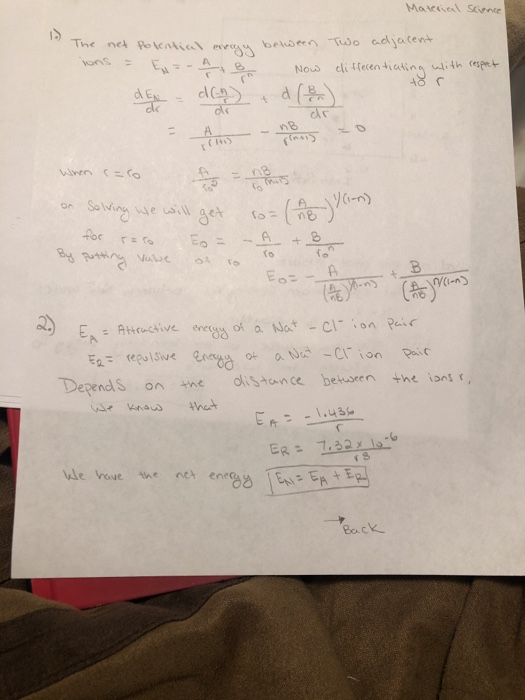 Material Science
1.) The net Potential energy between Two adjacent
ions = E_N = - A/r + B/r^n Now differentiating with respect
to r
dE_N/dr = d(-A/r)/dr + d(B/r^n)/dr
= A/r^(1+1) - nB/r^(n+1) = 0
When r = r0 A/r0^2 = nB/r0^(n+1)
on Solving we will get r0 = (A/nB)^1/(1-n)
for r = r0 E0 = - A/r0 + B/r0^n
By putting value of r0
E0 = - A/(A/nB)^1/(1-n) + B/(A/nB)^n/(1-n)
2.) E_A = Attractive energy of a Na+ - Cl- ion pair
E_R = repulsive Energy of a Na+ - Cl- ion pair
Depends on the distance between the ions r.
We know that
E_A = -1.436/r
E_R = 7.32 x 10^-6/r^8
We have the net energy E_N = E_A + E_R
→ Back